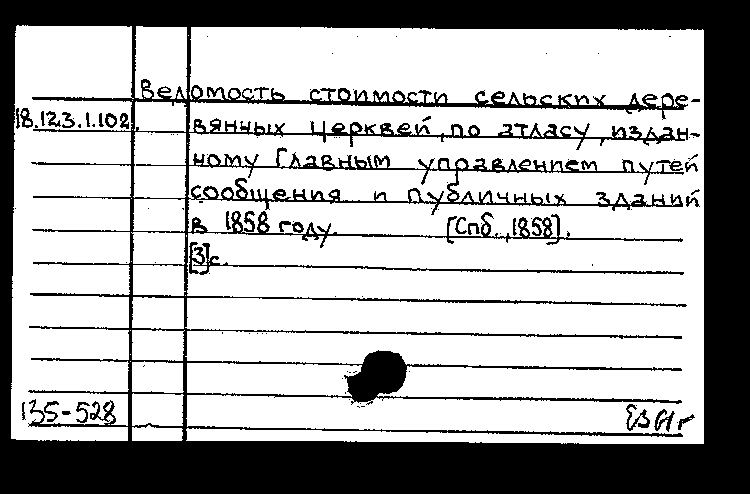 Ведомость стоимости сельских дере-
18.123.1.102. вянных церквей, по атласу, издан-
ному Главным управлением путей
сообщения и публичных зданий
в 1858 году. [Спб., 1858].
[3]с.
135-528